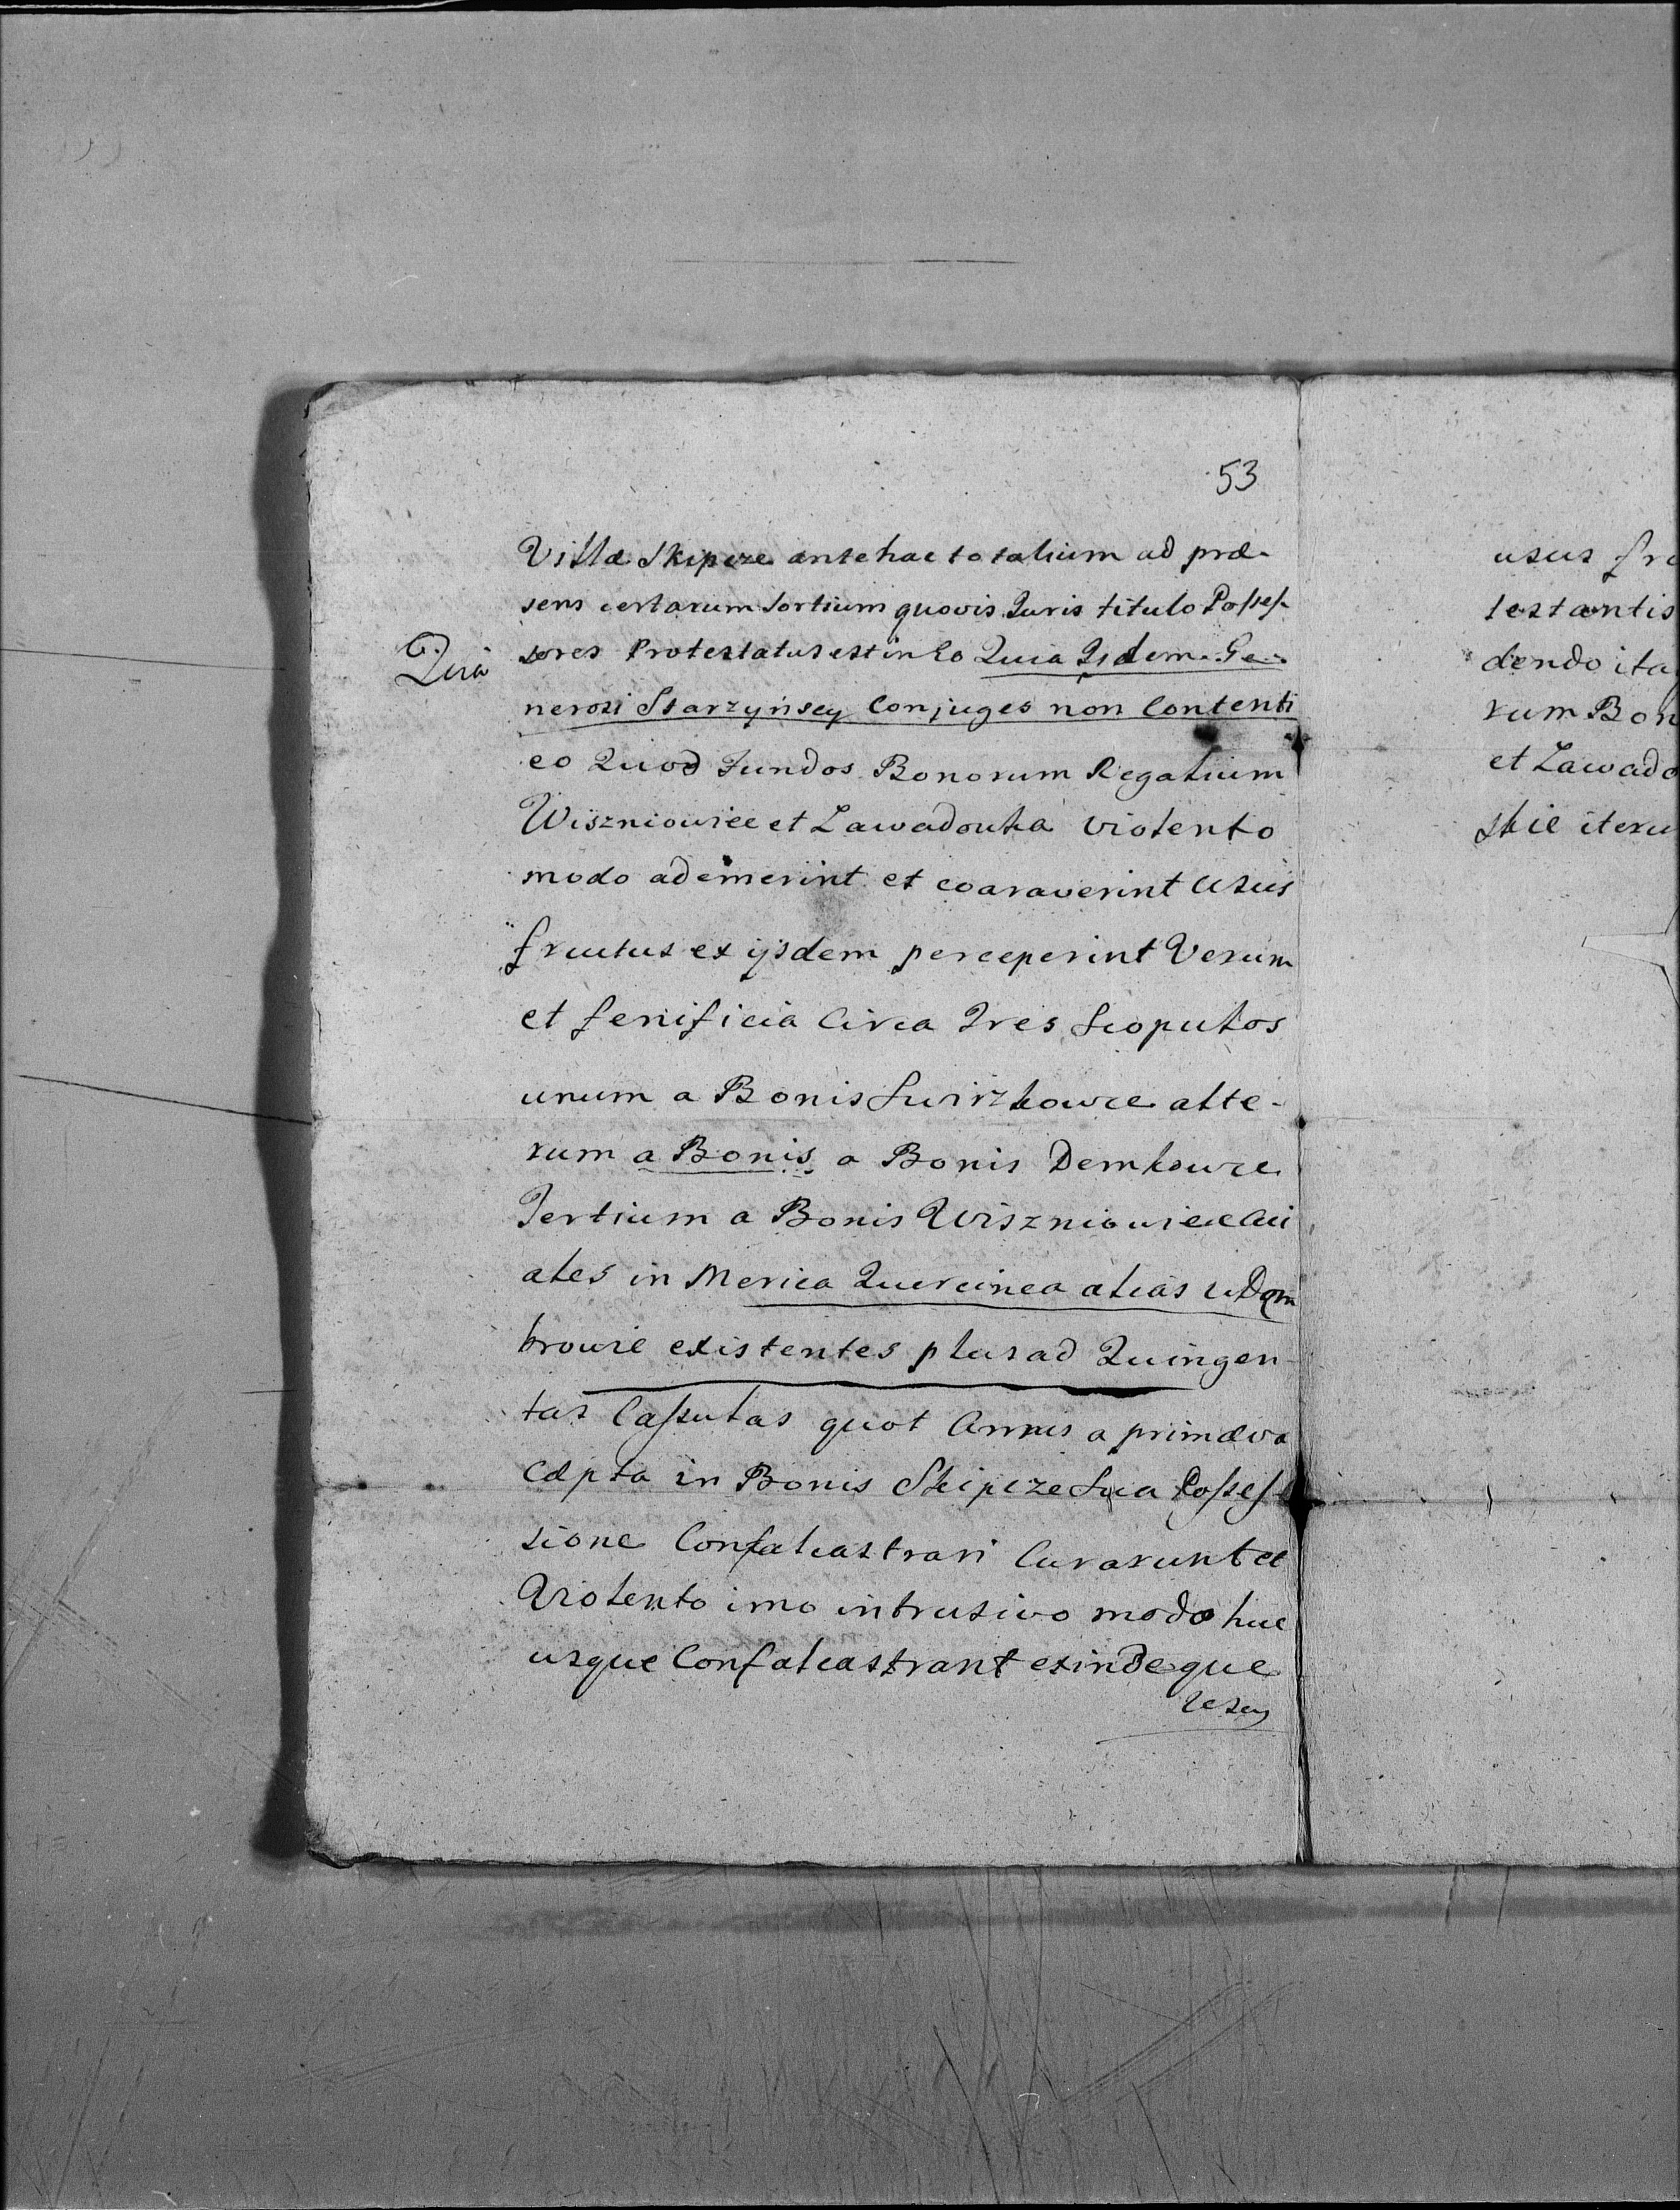 53
Villæ Skipcze antehac totalium ad præ-
sens certarum Sortium quovis Juris titulo Posses-
sores Protestatus est in Eo Quia Iidem Ge-
G.
Quia
nerosi Starzyńscy Conjuges non Contenti
eo Quod Fundos Bonorum Regalium
Wiszniowiec et Zawadowka violento
modo ademerint et coaraverint Usus
fructus ex ijsdem perceperint Verum
et fenificia Circa Tres Scopulos
unum a Bonis Swirzkowce alte-
rum a Bonis a Bonis Demkowce
Tertium a Bonis Wiszniowiec
ales in Merica Quercinea alias w Dom
browie existentes plus ad Quingen-
tas Cassulas quot Annis a primæva
Cæpta in Bonis Skipcze Sua Posses-
sione Confalcastrari Curarunt et
Violento imo intrusivo modo huc
usque Confalcastrant exindeque
Usus
usus fru
testantis
dendo ita
rum Bon
et Zawado
skie iteru